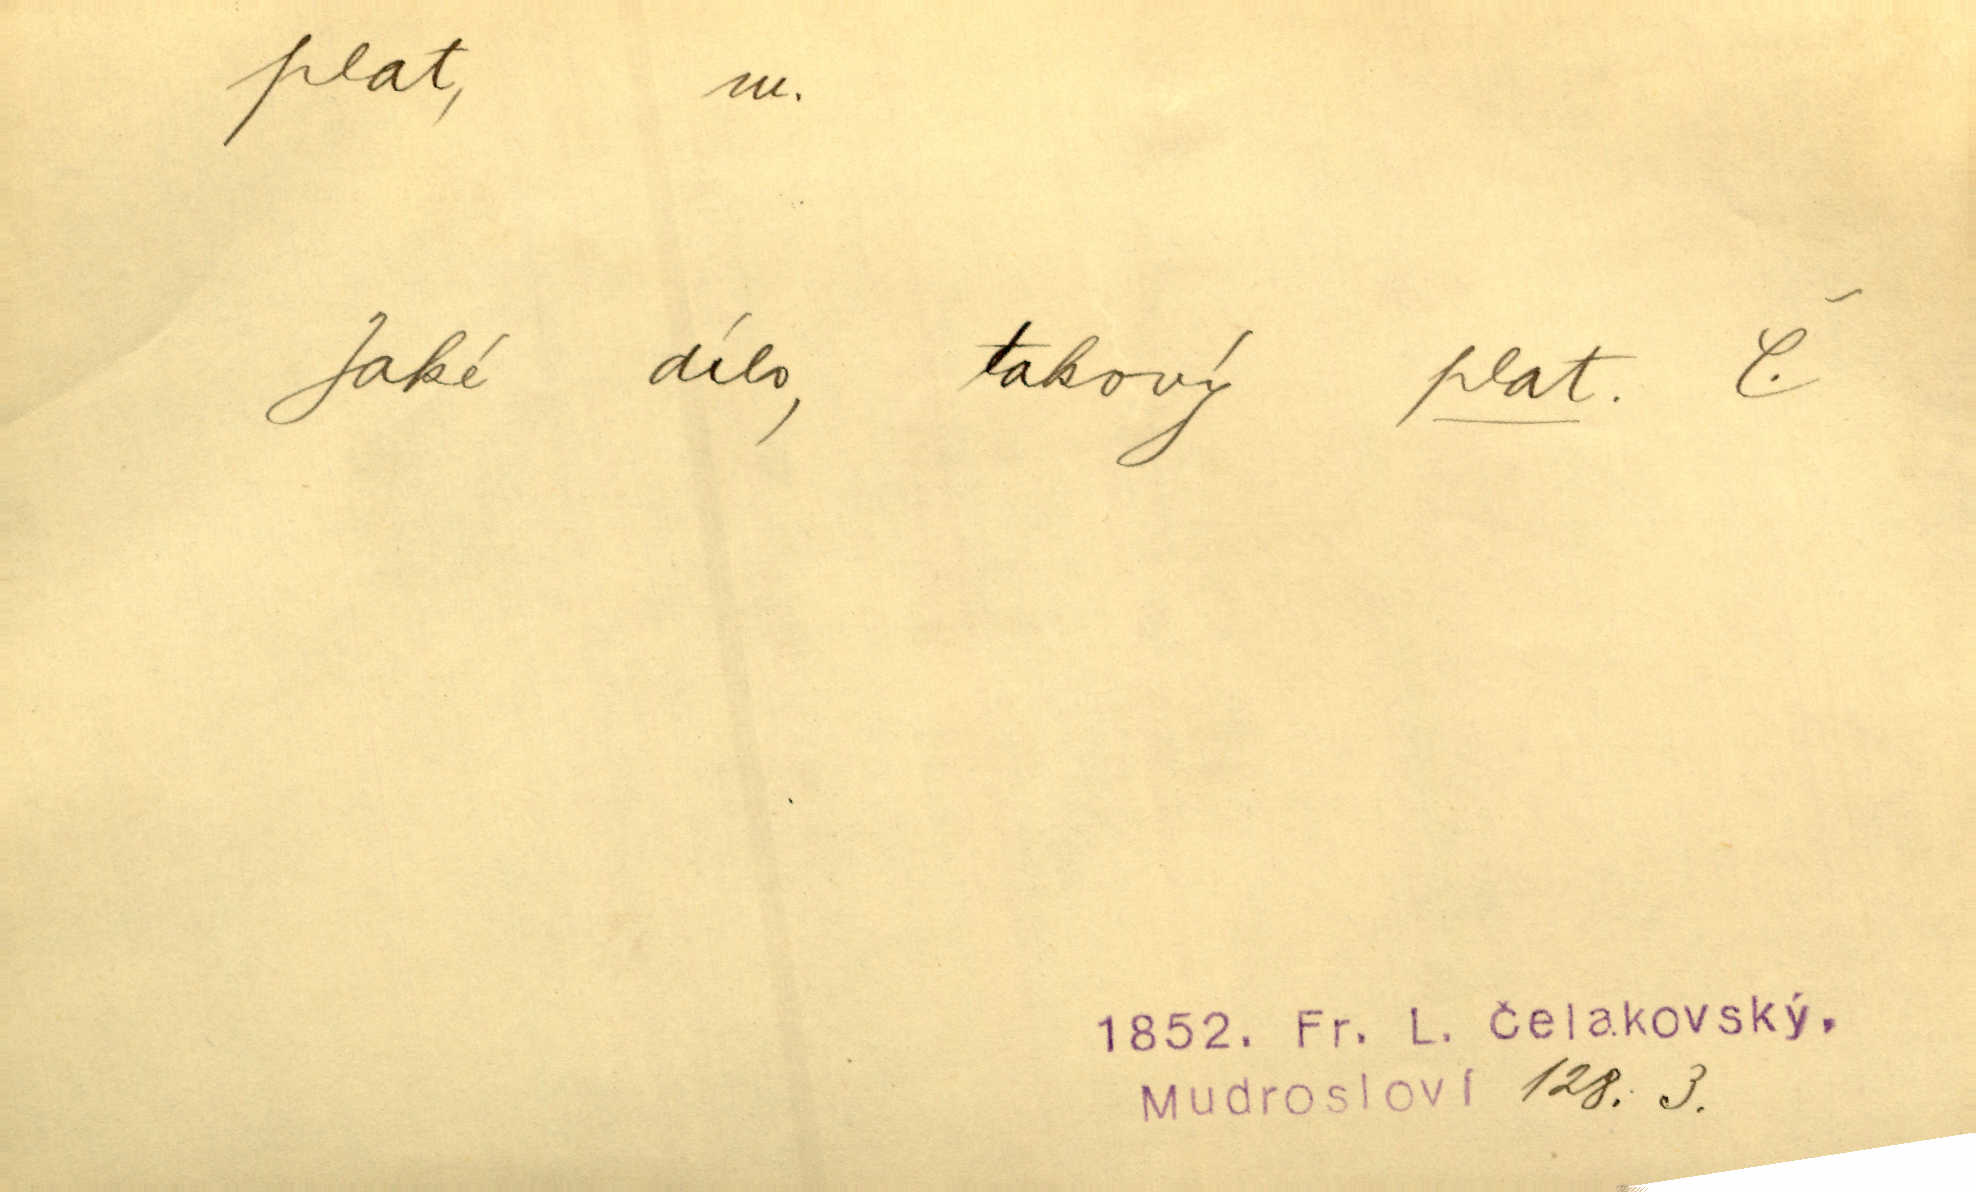 plat, m.
Jaké dílo, takový plat. Č.
1852. Fr. L. Čelakovský.
Mudrosloví 128. 3.